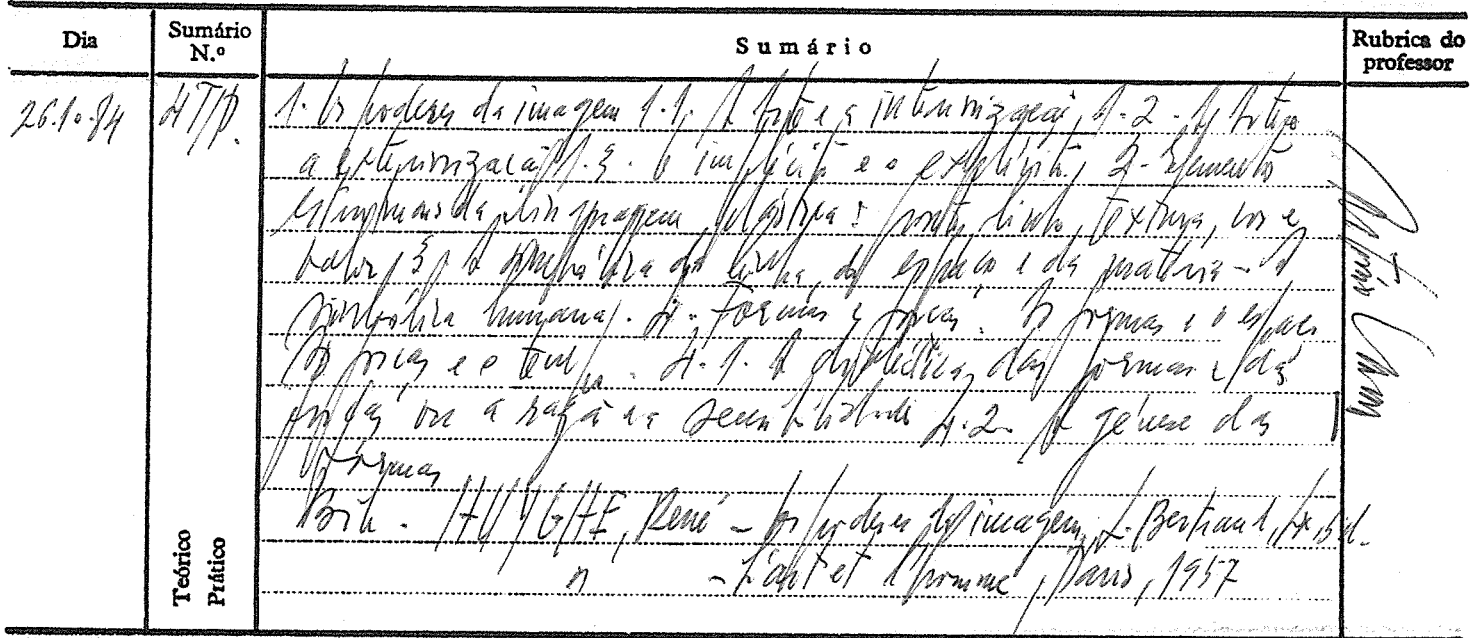 Dia
Sumário N.º
Sumário
Rubrica do professor
26.10.84
4 T/P.
1. Os poderes da imagem 1.1. A arte e a interiorização, 1.2. A arte e
a exteriorização 1.3. O implícito e o explícito, 2- Elementos
estruturais da linguagem plástica: ponto, linha, textura, cor e
valor, 3. A simbólica da linha, do espaço e da matéria - A
simbólica humana. 4- Formas e forças. As formas e o espaço
As forças e o tempo. 4.1. A dialéctica das formas e das
forças ou a razão e a sensibilidade 4.2. A génese das
formas
Bib. HUYGHE, René - Os poderes da imagem, L. Bertrand, Lx, s.d.
" - L'art et l'homme, Paris, 1957
Teórico
Prático